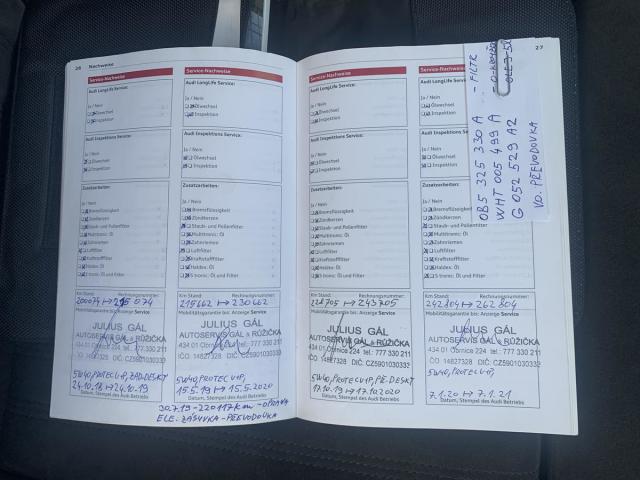 26 Nachweise
Service-Nachweise
Audi LongLife Service:
Ja / Nein
Ölwechsel
Inspektion
Audi Inspektions Service:
Ja / Nein
Ölwechsel
Inspektion
Zusatzarbeiten:
Ja / Nein
Bremsflüssigkeit
Zündkerzen
Staub- und Pollenfilter
Multitronic: Öl
Zahnriemen
Luftfilter
Kraftstofffilter
Haldex: Öl
S tronic: Öl und Filter
Km-Stand: Rechnungsnummer:
200074 → 215 074
Mobilitätsgarantie bis: Anzeige Service
JULIUS GÁL
AUTOSERVIS GÁL & RŮŽIČKA
434 01 Obrnice 224 tel.: 777 330 211
IČO: 14827328 DIČ: CZ5901030332
5W40, PROTEC V+P, ZAD.DESKY
24.10.18 → 24.10.19
Datum, Stempel des Audi Betriebs
Service-Nachweise
Audi LongLife Service:
Ja / Nein
Ölwechsel
Inspektion
Audi Inspektions Service:
Ja / Nein
Ölwechsel
Inspektion
Zusatzarbeiten:
Ja / Nein
Bremsflüssigkeit
Zündkerzen
Staub- und Pollenfilter
Multitronic: Öl
Zahnriemen
Luftfilter
Kraftstofffilter
Haldex: Öl
S tronic: Öl und Filter
Km-Stand: Rechnungsnummer:
215662 → 230662
Mobilitätsgarantie bis: Anzeige Service
JULIUS GÁL
AUTOSERVIS GÁL & RŮŽIČKA
434 01 Obrnice 224 tel.: 777 330 211
IČO: 14827328 DIČ: CZ5901030332
5W40, PROTEC V+P,
15.5.19 → 15.5.2020
Datum, Stempel des Audi Betriebs
30.7.19 - 220117km - OPRAVA
ELE. ZÁSUVKA - PŘEVODOVKA
27
Service-Nachweise
Audi LongLife Service:
Ja / Nein
Ölwechsel
Inspektion
Audi Inspektions Service:
Ja / Nein
Ölwechsel
Inspektion
Zusatzarbeiten:
Ja / Nein
Bremsflüssigkeit
Zündkerzen
Staub- und Pollenfilter
Multitronic: Öl
Zahnriemen
Luftfilter
Kraftstofffilter
Haldex: Öl
S tronic: Öl und Filter
Km-Stand: Rechnungsnummer:
228705 → 243705
Mobilitätsgarantie bis: Anzeige Service
JULIUS GÁL
AUTOSERVIS GÁL & RŮŽIČKA
434 01 Obrnice 224 tel.: 777 330 211
IČO: 14827328 DIČ: CZ5901030332
5W40, PROTEC V+P, PŘ. DESKY
17.10.19 → 17.10.2020
Datum, Stempel des Audi Betriebs
Service-Nachweise
Audi LongLife Service:
Ja / Nein
Ölwechsel
Inspektion
Audi Inspektions
Ja / Nein
Ölwechsel
Inspektion
Zusatzarbeiten:
Ja / Nein
Bremsflüssigkeit
Zündkerzen
Staub- und Pollenfilter
Multitronic: Öl
Zahnriemen
Luftfilter
Kraftstofffilter
Haldex: Öl
S tronic: Öl und Filter
Km-Stand: Rechnungsnummer:
Mobilitätsgarantie bis: Anzeige Service
JULIUS GÁL
AUTOSERVIS GÁL & RŮŽIČKA
434 01 Obrnice 224 tel.: 777 330 211
IČO: 14827328 DIČ: CZ5901030332
5W40, PROTEC V+P,
7.1.20 → 7.1.21
Datum, Stempel des Audi Betriebs
0B5 325 330 A - FILTR
WHT 005 499 A
G 052 529 A2
VO. PŘEVODOVKA